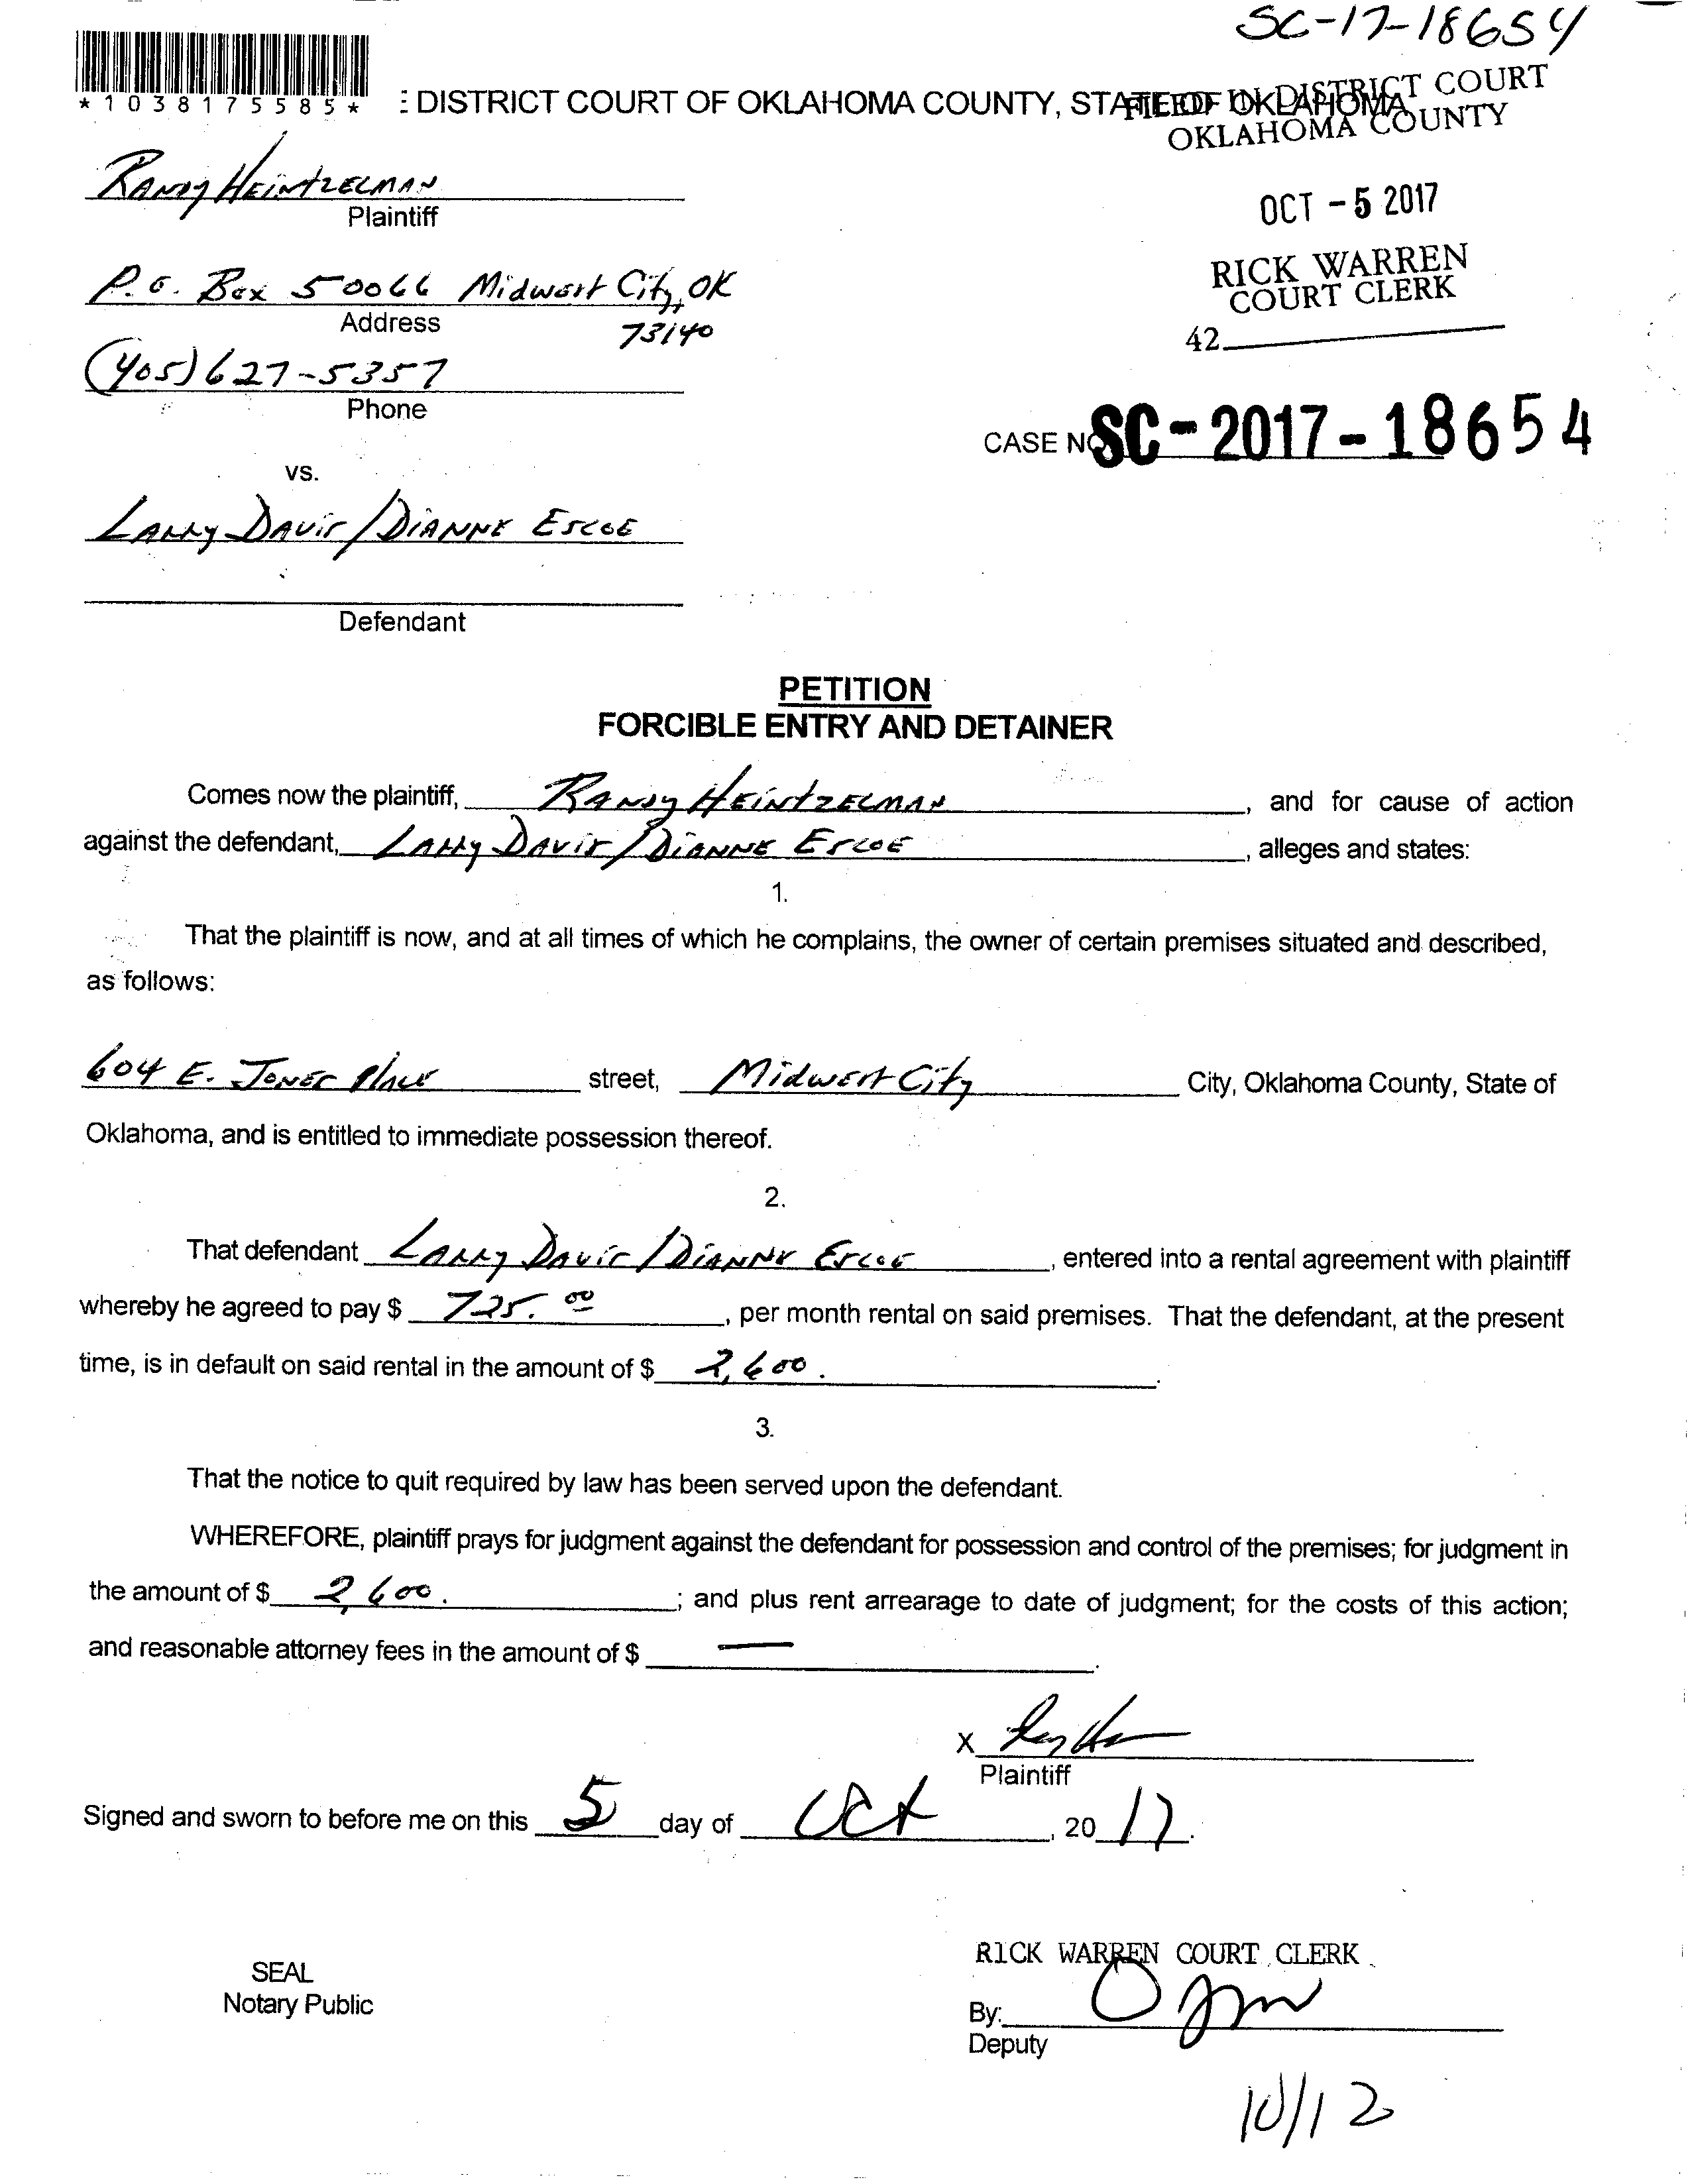 SC-17-18654
*1038175585*
DISTRICT COURT OF OKLAHOMA COUNTY, STATE OF OKLAHOMA
FILED IN DISTRICT COURT
OKLAHOMA COUNTY
OCT -5 2017
RICK WARREN
COURT CLERK
42
Randy Heintzelman
Plaintiff
P.O. Box 50066 Midwest City, OK
73140
Address
(405) 627-5357
Phone
CASE NO SC-2017-18654
vs.
Larry Davis/Dianne Escoe
Defendant
PETITION
FORCIBLE ENTRY AND DETAINER
Comes now the plaintiff, Randy Heintzelman, and for cause of action
against the defendant, Larry Davis/Dianne Escoe, alleges and states:
1.
That the plaintiff is now, and at all times of which he complains, the owner of certain premises situated and described,
as follows:
604 E. Jones Place street, Midwest City City, Oklahoma County, State of
Oklahoma, and is entitled to immediate possession thereof.
2.
That defendant Larry Davis/Dianne Escoe, entered into a rental agreement with plaintiff
whereby he agreed to pay $ 725.00, per month rental on said premises. That the defendant, at the present
time, is in default on said rental in the amount of $ 2,600.
3.
That the notice to quit required by law has been served upon the defendant.
WHEREFORE, plaintiff prays for judgment against the defendant for possession and control of the premises; for judgment in
the amount of $ 2,600. ; and plus rent arrearage to date of judgment; for the costs of this action;
and reasonable attorney fees in the amount of $ — .
X
Plaintiff
Signed and sworn to before me on this 5 day of Oct, 2017.
SEAL
Notary Public
RICK WARREN COURT CLERK
By:
Deputy
10/12